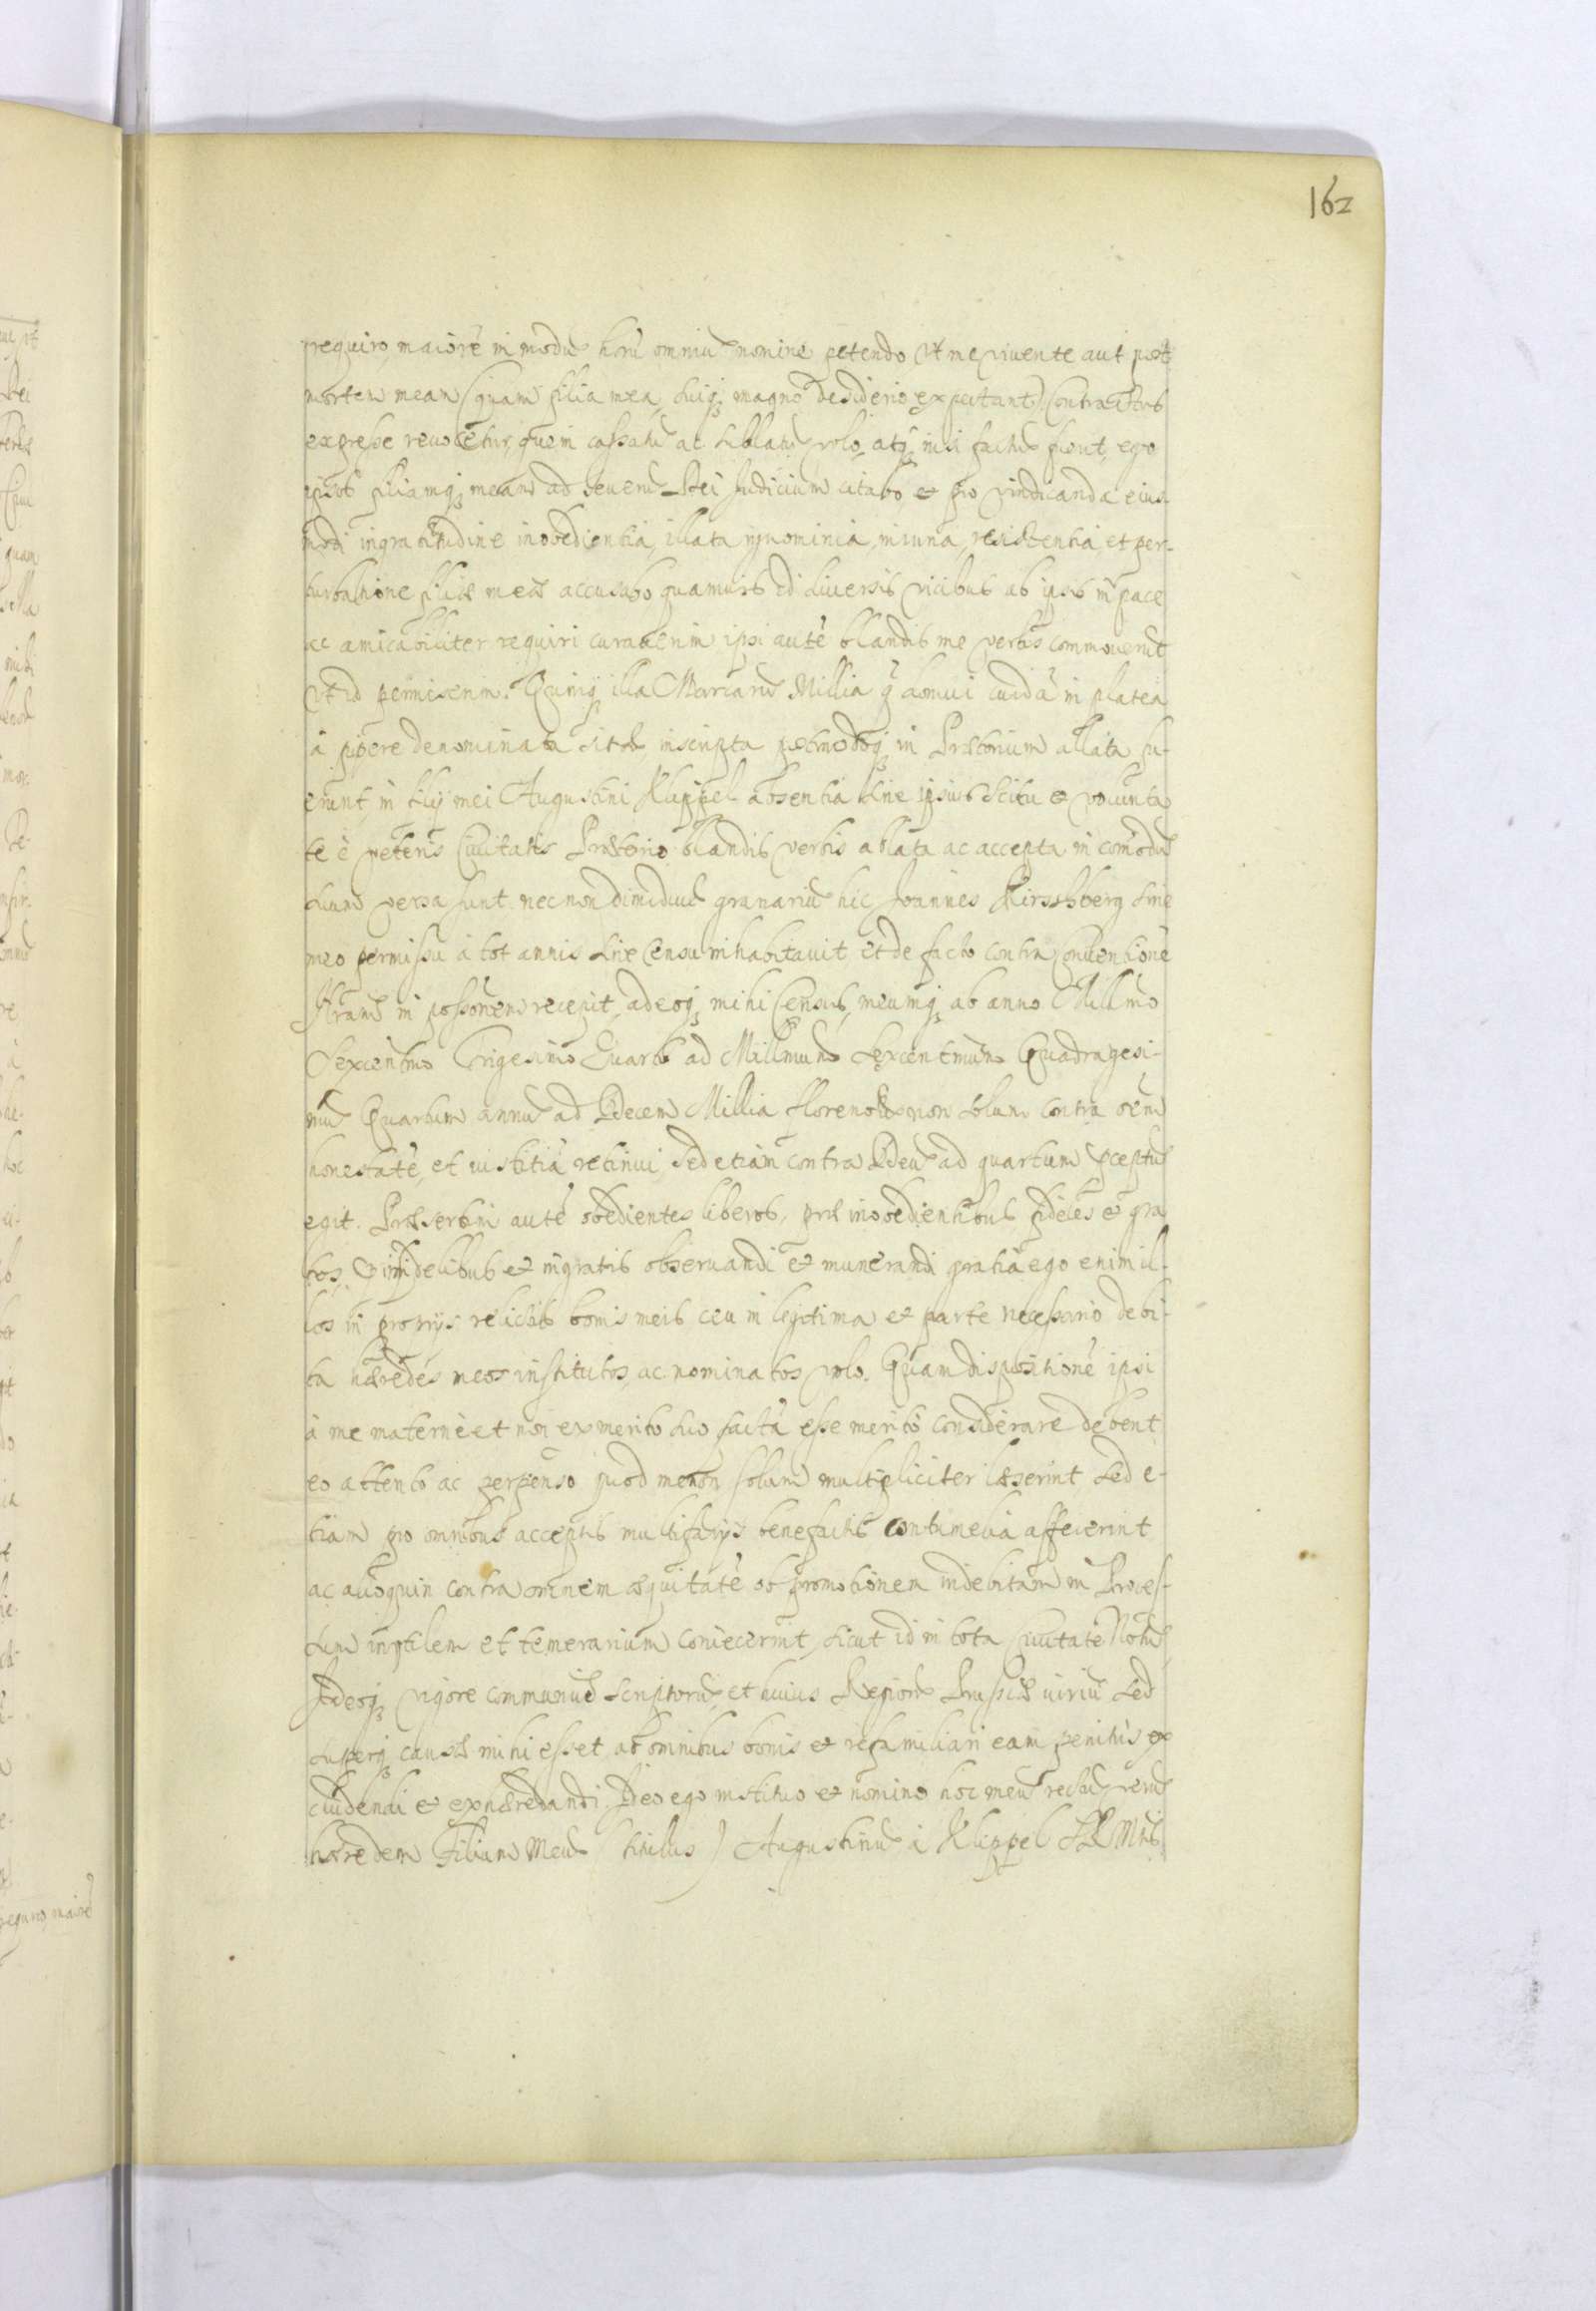 162
requiro maiorē in modū horū omniū nomine petendo Vt me viuente aut post
mortem meam (quam filia mea, suiq; magno desiderio expectant) Contractus
expresse reuocētur, quem cassatū ac sublatū volo, atq; nisi factū fuerit, ego
ipsos filiamq; meam ad seuerū Dei Judicium citabo, et pro vindicanda eius-
modi ingratitudine inobedientia, illata ignominia, iniuria, resistentia, et per-
turbatione filiæ meæ accusabo quamuis id diuersis vicibus ab ipsis in pace
ac amicabiliter requiri curauerim ipsi autē blandis me verbis commouerūt
Vt id permiserim. Cumq; illa Marcarū Millia q̄ domui cuidā in platea
à pipere denominata sitæ, inscripta postmodoq; in Prætorium allata fu-
erunt, in filij mei Augustini Klippel absentia sine ipsius scitu et volunta
te è veteris Ciuitatis Prætorio blandis verbis ablata ac accepta in comodū
suum versa sunt. nec non dimidiū granariū hic Joannes Kirschberg sine
meo permissu à tot annis sine Censu inhabitauit, et de facto contra conuentionē
in possōnem recepit, adeoq; mihi Census, meumq; ab anno Millmo
Sexcentmo Trigesimo Quarto ad Millmum Sexcentmum Quadragesi-
mū Quartum annū ad Decem Millia florenor non solum contra oēm
honestatē, et iustitiā retinui, sed etiam contra Deū ad quartum pceptū
egit. Præsertim autē obedientes liberos, præ inobedientibus fideles et gra
tos, infidelibus et ingratis obseruandi et munerandi gratia ego enim il-
los in proprijs relictis bonis meis ceu in legitima et parte necessario debi-
ta hæredes meos institutos, ac nominatos volo. Quam dispositionē ipsi
à me maternè et non ex merito suo factā esse meritò considerare debent
eo attento ac perpenso quod me non solum multipliciter læserint sed e-
tiam pro omnibus acceptis multifarijs benefactis contumelia affecerint
ac alioquin contra omnem æquitatē ob promotionem indebitam in Proces-
sum inutilem et temerarium coniecerint, sicut id in tota Ciuitate Notū
Adeoq; vigore communiū scriptorū, et huius Regiorū Prussiæ iuriū sed
superq; causæ mihi esset, ab omnibus bonis et re familiari eam penitus ex
cludendi et exhæredandi, Ideo ego instituo et nomino hoc meū rectū verū
hæredem Filium Meū (titulus) Augustinū à Klippel SRMtis